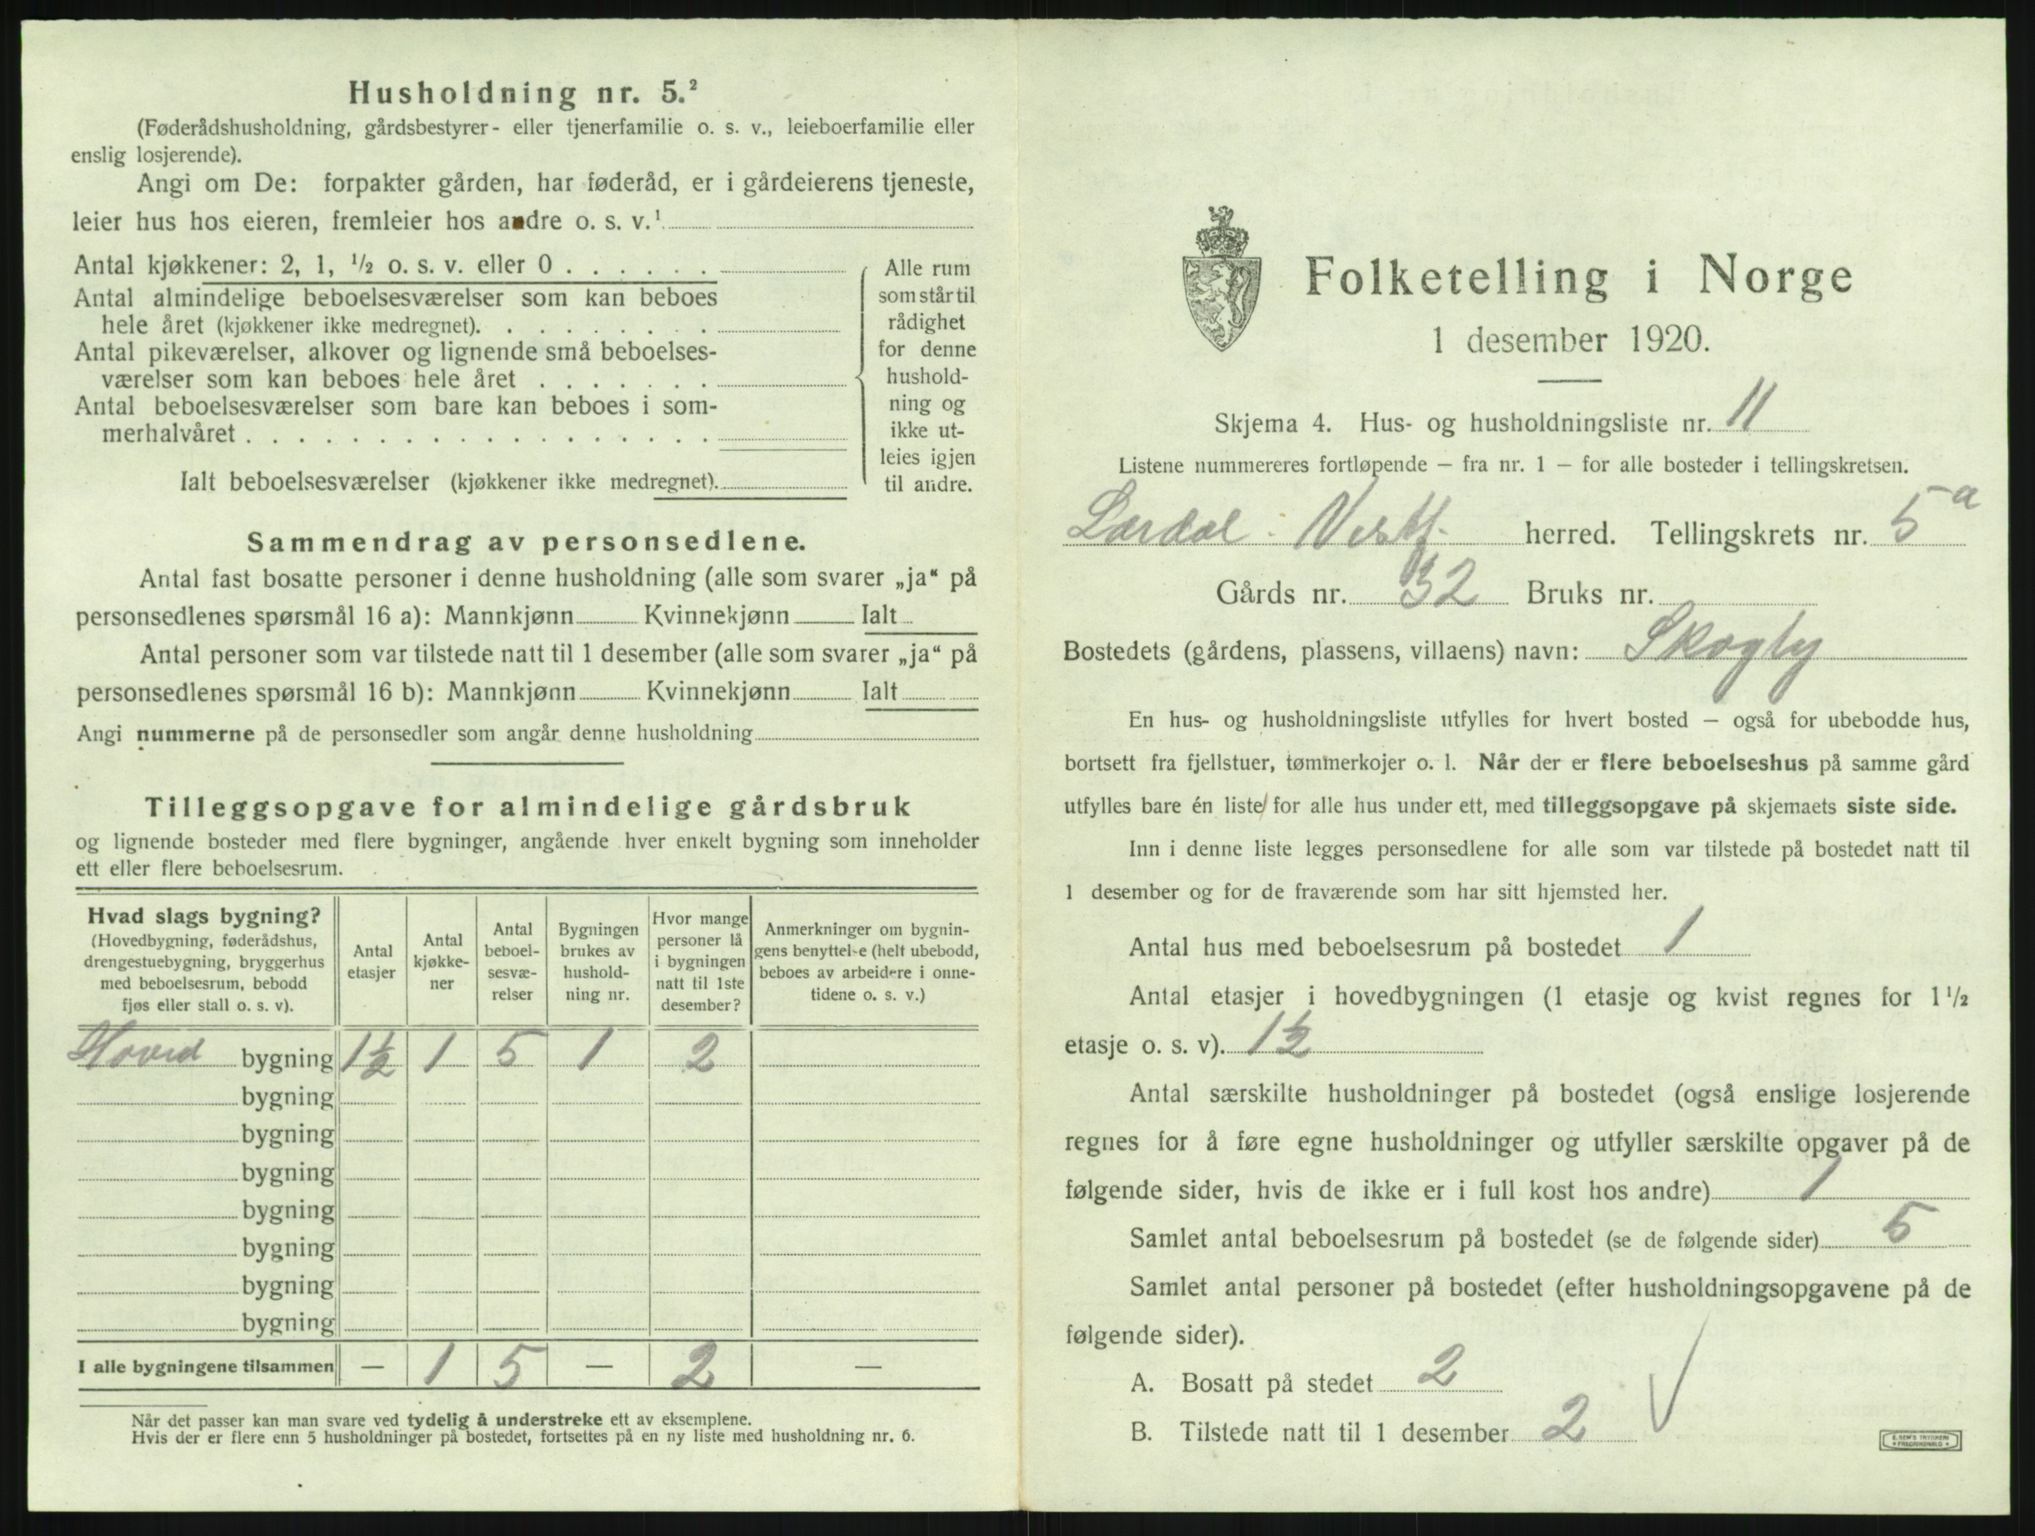 Husholdning nr. 5.²
(Føderådshusholdning, gårdsbestyrer- eller tjenerfamilie o. s. v., leieboerfamilie eller
enslig losjerende).
Angi om De: forpakter gården, har føderåd, er i gårdeierens tjeneste,
leier hus hos eieren, fremleier hos andre o. s. v.¹
Antal kjøkkener: 2, 1, ½ o. s. v. eller 0 . . . . . .
Antal almindelige beboelsesværelser som kan beboes
hele året (kjøkkener ikke medregnet). . . . . . . . .
Antal pikeværelser, alkover og lignende små beboelses-
værelser som kan beboes hele året . . . . . . .
Antal beboelsesværelser som bare kan beboes i som-
merhalvåret . . . . . . . . . . . . . . . . . .
Ialt beboelsesværelser (kjøkkener ikke medregnet).
Alle rum
som står til
rådighet
for denne
hushold-
ning og
ikke ut-
leies igjen
til andre.
Sammendrag av personsedlene.
Antal fast bosatte personer i denne husholdning (alle som svarer „ja“ på
personsedlenes spørsmål 16 a): Mannkjønn Kvinnekjønn Ialt
Antal personer som var tilstede natt til 1 desember (alle som svarer „ja“ på
personsedlenes spørsmål 16 b): Mannkjønn Kvinnekjønn Ialt
Angi nummerne på de personsedler som angår denne husholdning
Tilleggsopgave for almindelige gårdsbruk
og lignende bosteder med flere bygninger, angående hver enkelt bygning som inneholder
ett eller flere beboelsesrum.
Hvad slags bygning?
(Hovedbygning, føderådshus,
drengestuebygning, bryggerhus
med beboelsesrum, bebodd
fjøs eller stall o. s. v).
Antal
etasjer
Antal
kjøkke-
ner
Antal
beboel-
sesvæ-
relser
Bygningen
brukes av
hushold-
ning nr.
Hvor mange
personer lå
i bygningen
natt til 1ste
desember?
Anmerkninger om bygnin-
gens benyttelse (helt ubebodd,
beboes av arbeidere i onne-
tidene o. s. v.)
Hoved bygning 1½ 1 5 1 2
bygning
bygning
bygning
bygning
bygning
bygning
bygning
I alle bygningene tilsammen — 1 5 — 2 —
Når det passer kan man svare ved tydelig å understreke ett av eksemplene.
Hvis der er flere enn 5 husholdninger på bostedet, fortsettes på en ny liste med husholdning nr. 6.
Folketelling i Norge
1 desember 1920.
Skjema 4. Hus- og husholdningsliste nr. 11
Listene nummereres fortløpende — fra nr. 1 — for alle bosteder i tellingskretsen.
Lardal - Vestf. herred. Tellingskrets nr. 5a
Gårds nr. 32 Bruks nr.
Bostedets (gårdens, plassens, villaens) navn: Skogly
En hus- og husholdningsliste utfylles for hvert bosted — også for ubebodde hus,
bortsett fra fjellstuer, tømmerkojer o. l. Når der er flere beboelseshus på samme gård
utfylles bare én liste for alle hus under ett, med tilleggsopgave på skjemaets siste side.
Inn i denne liste legges personsedlene for alle som var tilstede på bostedet natt til
1 desember og for de fraværende som har sitt hjemsted her.
Antal hus med beboelsesrum på bostedet 1
Antal etasjer i hovedbygningen (1 etasje og kvist regnes for 1½
etasje o. s. v). 1½
Antal særskilte husholdninger på bostedet (også enslige losjerende
regnes for å føre egne husholdninger og utfyller særskilte opgaver på de
følgende sider, hvis de ikke er i full kost hos andre) 1
Samlet antal beboelsesrum på bostedet (se de følgende sider) 5
Samlet antal personer på bostedet (efter husholdningsopgavene på de
følgende sider).
A. Bosatt på stedet 2
B. Tilstede natt til 1 desember 2